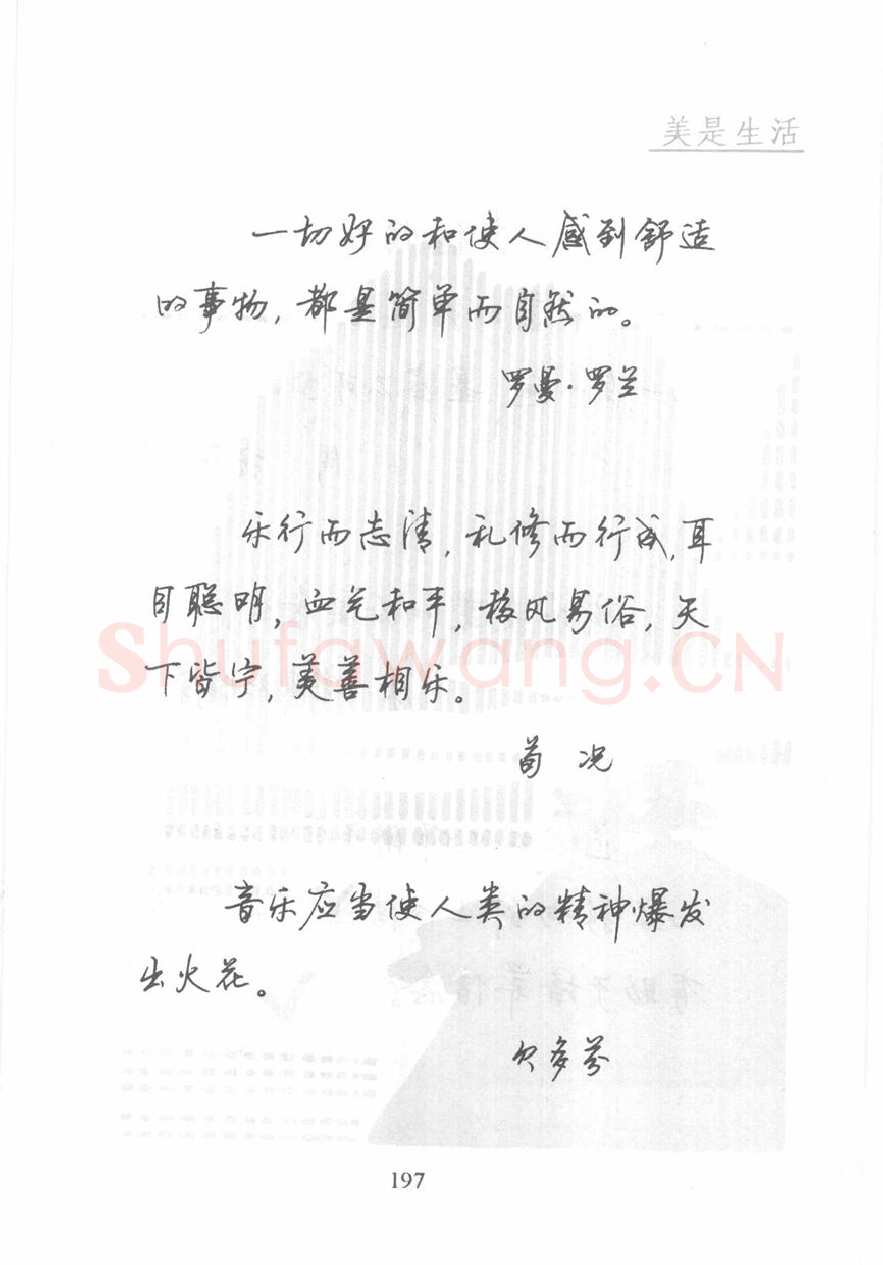 美是生活
一切好的和使人感到舒适
的事物，都是简单而自然的。
罗曼·罗兰
乐行而志清，礼修而行成，耳
目聪明，血气和平，移风易俗，天
下皆宁，美善相乐。
荀 况
Shufawang.CN
音乐应当使人类的精神爆发
出火花。
贝多芬
197